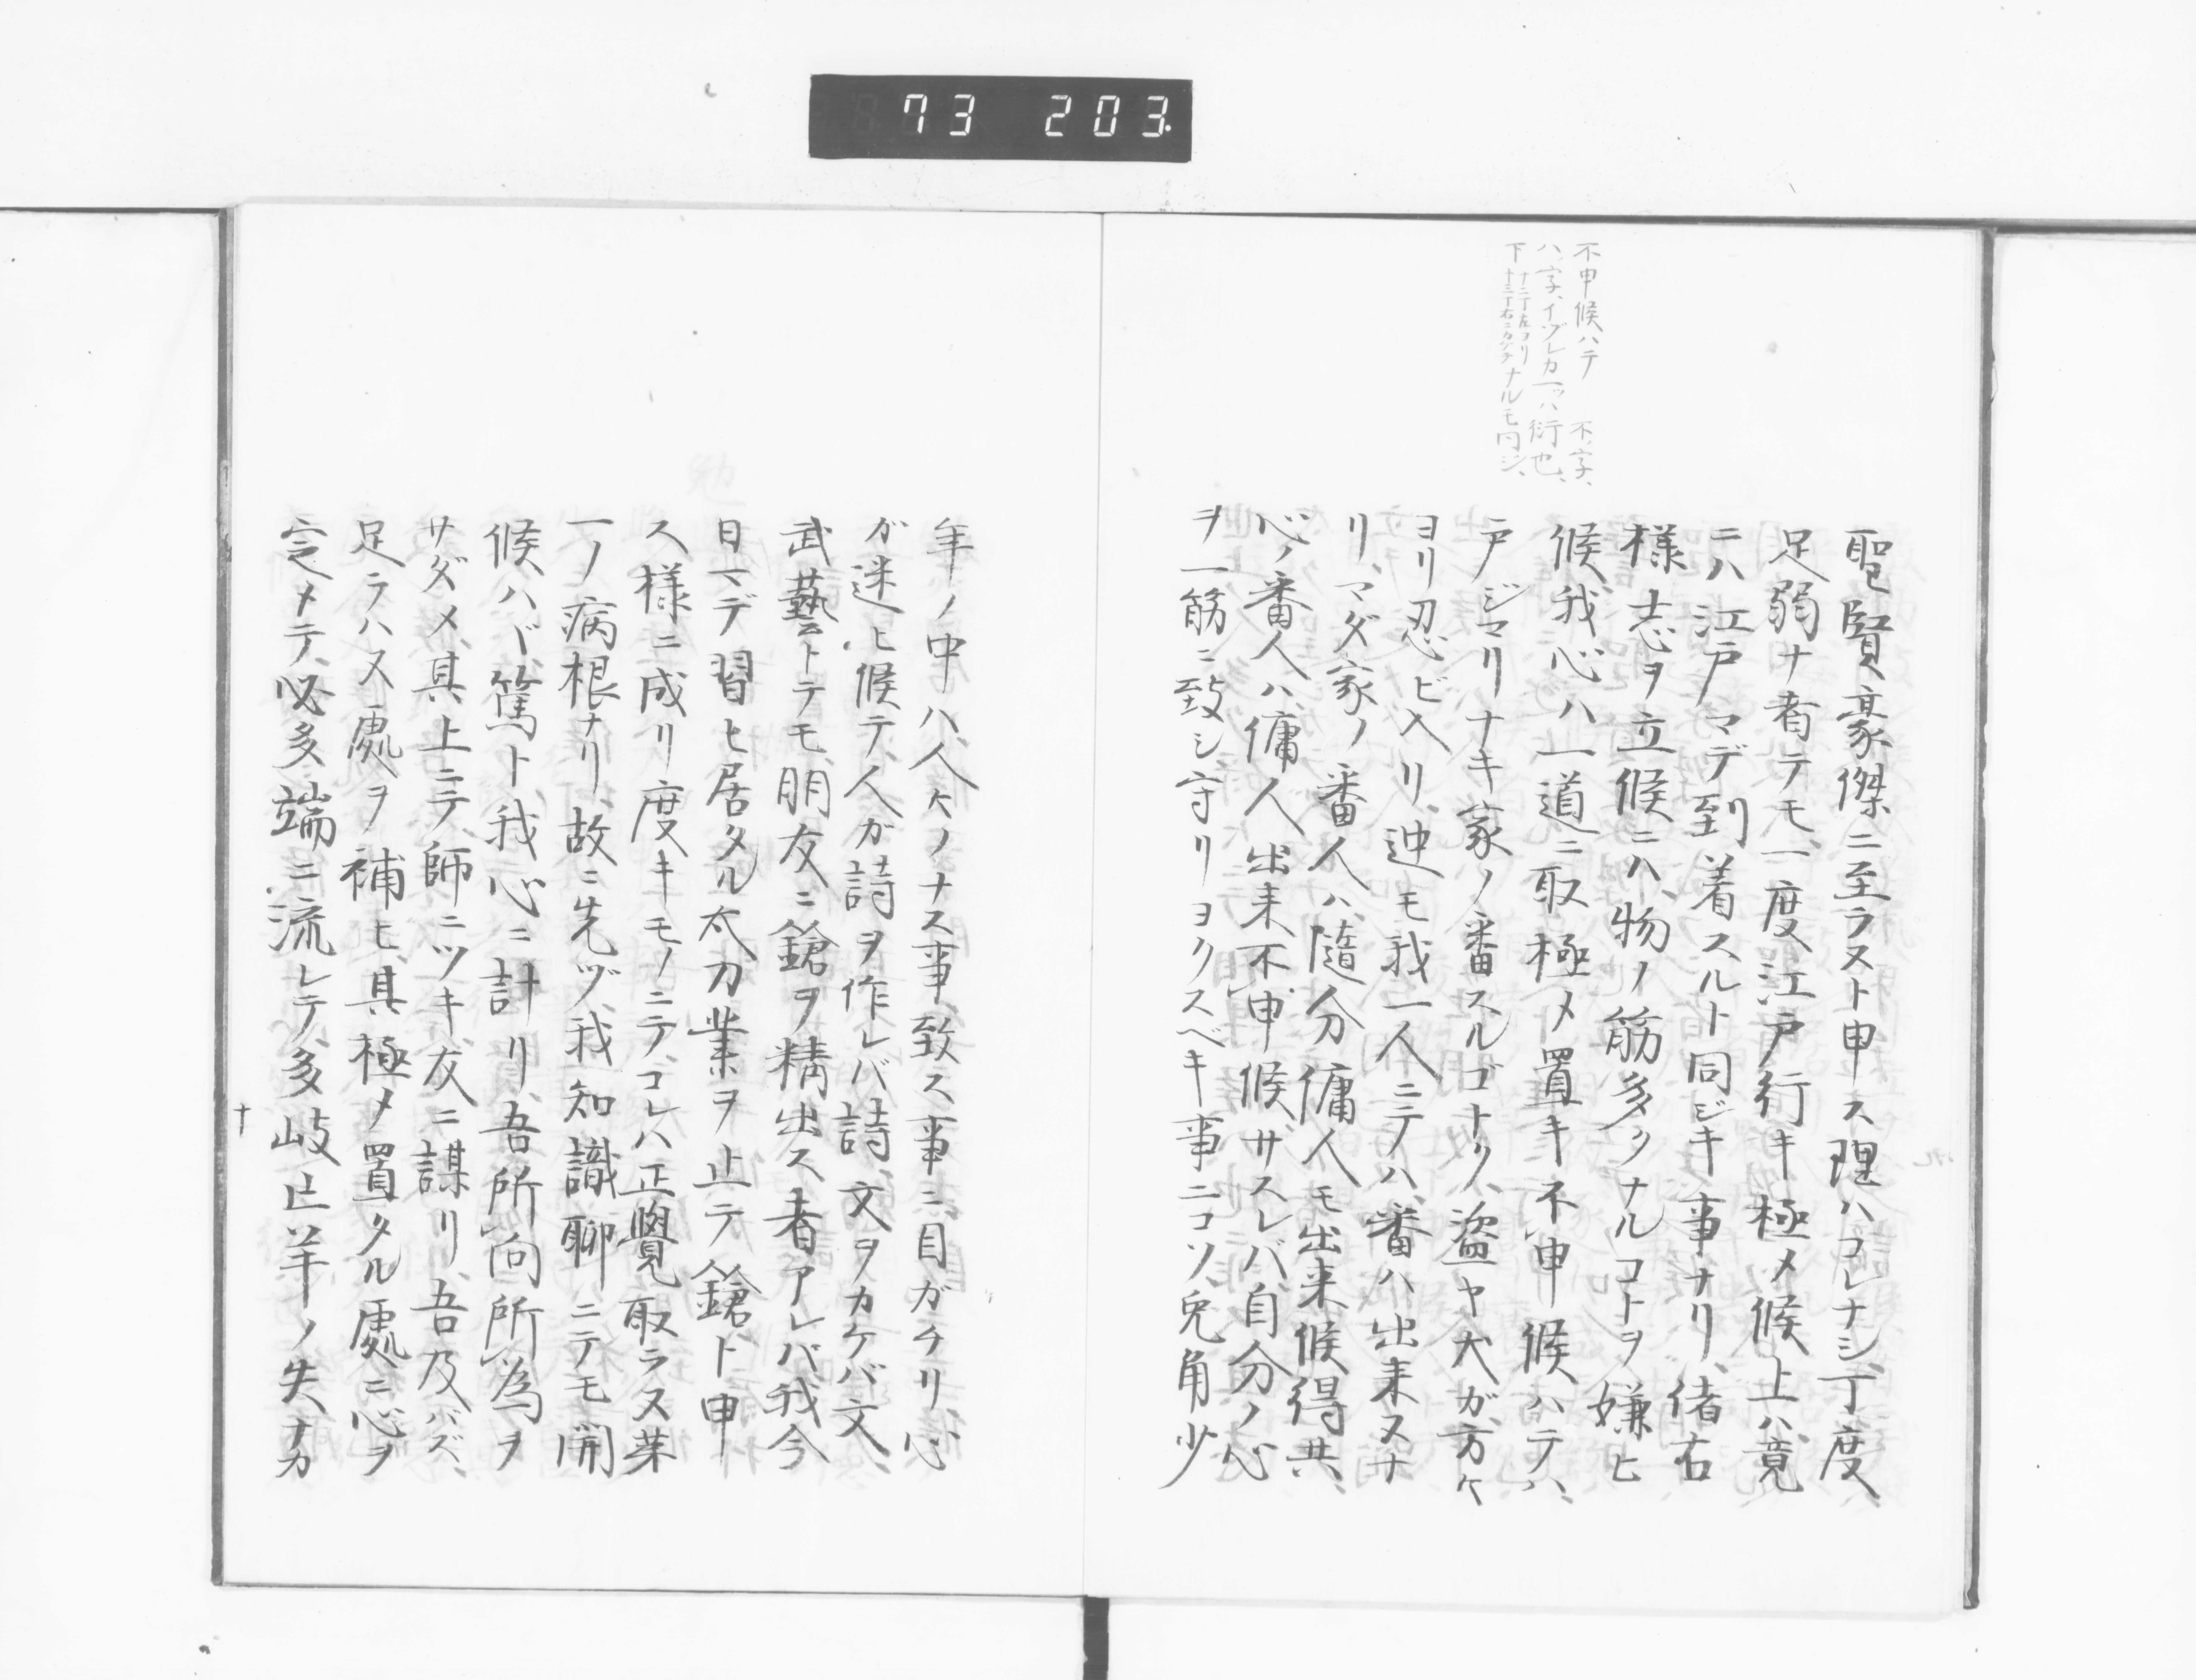 73 203.
不申候ハテ 不ノ字、
ハノ字、イヅレカ一ツハ衍也、
十二丁左ヨリ
下十三丁右ニカケテナルモ同ジ、
聖賢豪傑ニ至ラスト申ス理ハコレナシ、丁度
足弱ナ者テモ、一度江戸行キ極メ候上ハ、竟
ニハ江戸マデ到着スルト同ジキ事ナリ、偖右
様志ヲ立候ニハ、物ノ筋多クナルコトヲ嫌ヒ
候、我心ハ一道ニ取極メ置キ不申候ハテハ、
戸ジマリナキ家ノ番スルゴトク、盗ヤ犬ガ方々
ヨリ忍ビ入リ、迚モ我一人ニテハ、番ハ出来ヌナ
リ、マダ家ノ番人ハ、随分傭人モ出来候得共、
心ノ番人ハ、傭人出来不申候、サスレバ自分ノ心
ヲ一筋ニ致シ守リヨクスベキ事ニコソ、兎角少
年ノ中ハ人々ノナス事、致ス事ニ目ガチリ、心
ガ迷ヒ候テ、人ガ詩ヲ作レバ詩、文ヲカケバ文、
武藝トテモ、朋友ニ鎗ヲ精出ス者アレバ、我今
日マデ習ヒ居タル太刀業ヲ止テ、鎗ト申
ス様ニ成リ度キモノニテ、コレハ正覺取ラヌ第
一ノ病根ナリ、故ニ先ヅ我知識聊ニテモ開
候ハド、篤ト我心ニ計リ、吾所向所為ヲ
サダメ、其上ニテ師ニツキ、友ニ謀リ、吾及バズ、
足ラハヌ處ヲ補ヒ、其極メ置タル處ニ心ヲ
定メテ、必多端ニ流レテ、多岐亡羊ノ失ナカ
十